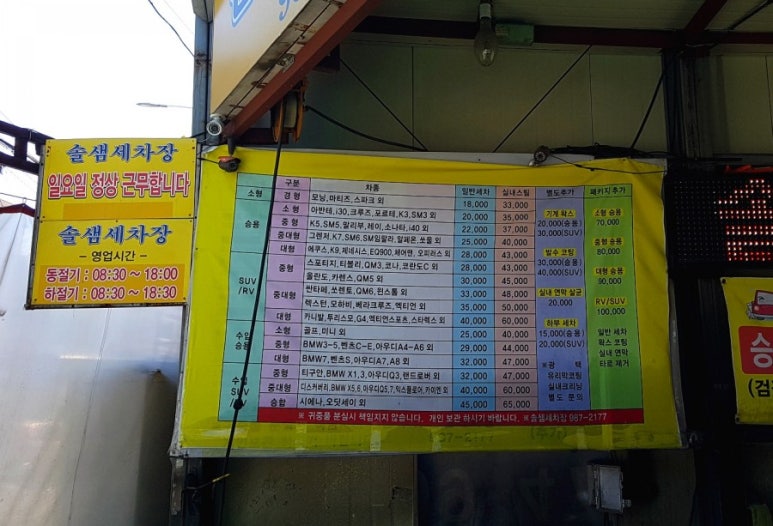 솔샘세차장
일요일 정상 근무합니다
솔샘세차장
- 영업시간 -
동절기 : 08:30 ~ 18:00
하절기 : 08:30 ~ 18:30
구분 차종 일반세차 실내스팀 별도추가 패키지추가
소형 경형 모닝,마티즈,스파크 외 18,000 33,000
승용 소형 아반떼,i30,크루즈,포르테,K3,SM3 외 20,000 35,000
중형 K5,SM5,말리부,제이,소나타,i40 외 22,000 37,000
중대형 그랜저,K7,SM6,SM임팔라,알페온,쏘울 외 25,000 40,000
대형 에쿠스,K9,제네시스,EQ900,체어맨,오피러스 외 28,000 43,000
SUV/RV 중형 스포티지,티볼리,QM3,코나,코란도C 외 28,000 43,000
올란도,카렌스,QM5 외 30,000 45,000
중대형 싼타페,쏘렌토,QM6,윈스톰 외 33,000 48,000
렉스턴,모하비,베라크루즈,엑티언 외 35,000 50,000
대형 카니발,투리스모,G4,엑티언스포츠,스타렉스 외 40,000 60,000
수입 승용 소형 골프,미니 외 25,000 40,000
중형 BMW3~5,벤츠C~E,아우디A4~A6 외 29,000 44,000
대형 BMW7,벤츠S,아우디A7,A8 외 32,000 47,000
수입 SUV 중형 티구안,BMW X1,3,아우디Q3,랜드로버 외 32,000 47,000
중대형 디스커버리,BMW X5,6,아우디Q5,7,익스플로어,카이엔 외 40,000 60,000
승합 시에나,오딧세이 외 45,000 65,000
기계 왁스
20,000(승용)
30,000(SUV)
발수 코팅
30,000(승용)
40,000(SUV)
실내 연막 살균
20,000
하부 세차
15,000(승용)
20,000(SUV)
※ 광택
유리막코팅
실내크리닝
별도 문의
소형 승용
70,000
중형 승용
80,000
대형 승용
90,000
RV/SUV
100,000
일반 세차
왁스 코팅
실내 연막
타르 제거
※ 귀중품 분실시 책임지지 않습니다. 개인 보관 하시기 바랍니다. ※솔샘세차장 987-2177
승